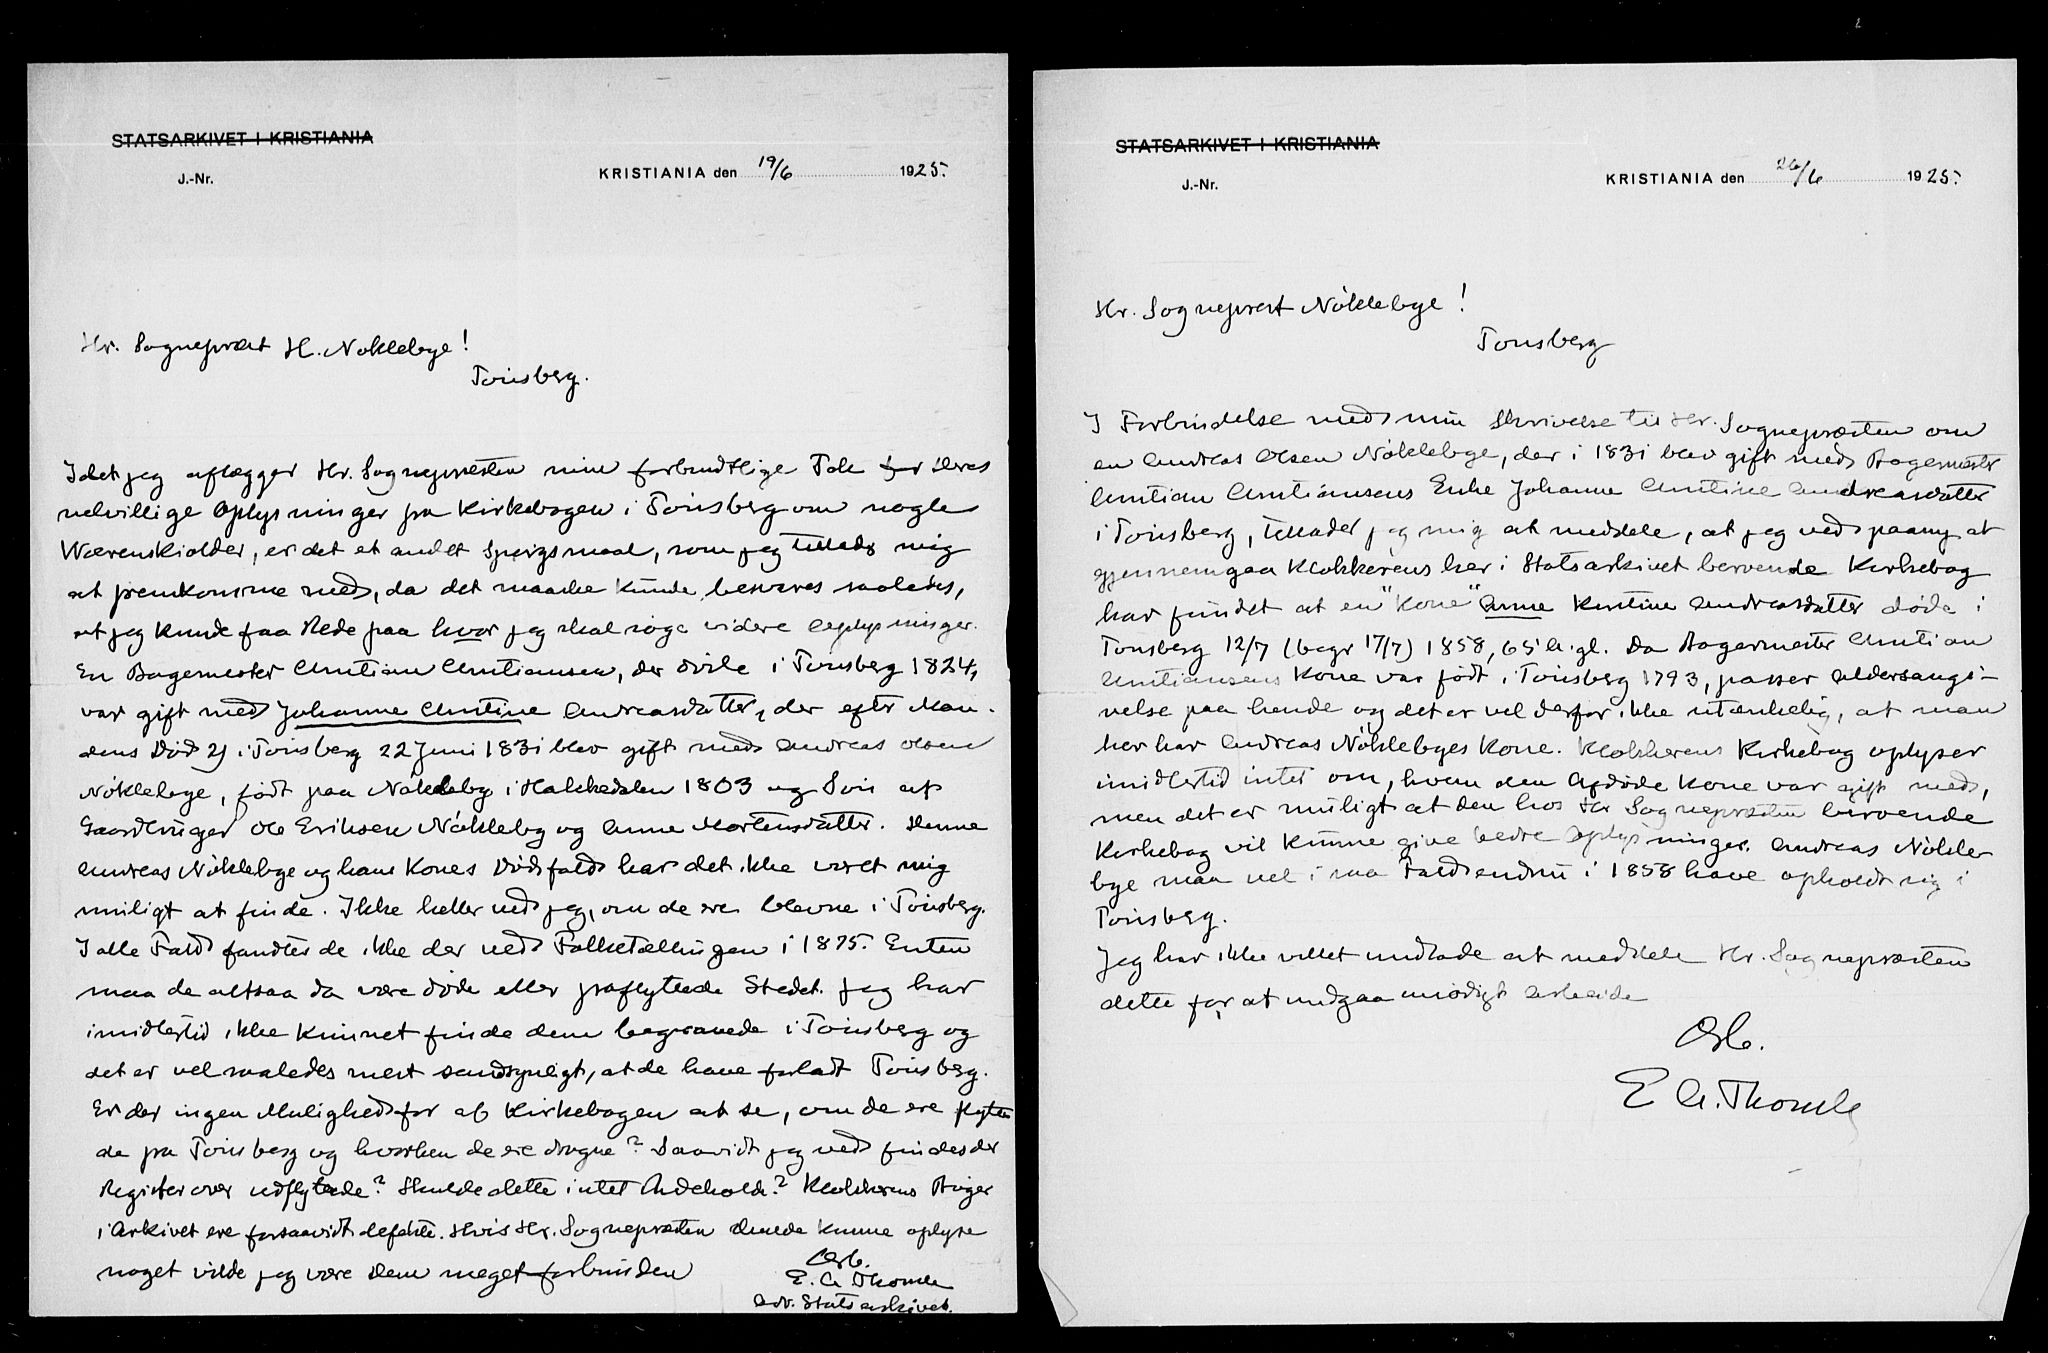 STATSARKIVET I KRISTIANIA
J.-Nr.
KRISTIANIA den 19/6 1925.
Hr. Sogneprest H. Nöklebye!
Tönsberg.
Idet jeg aflægger Hr. Sognepresten min forbindtlige Tak for Deres
velvillige Oplysninger fra Kirkebogen i Tönsberg om nogle
Wærenskiolder, er det et andet Spörgsmaal, som jeg tillader mig
at fremkomme med, da det maaske kunde besvares saaledes,
at jeg kunde faa Rede paa hvor jeg skal söge videre Oplysninger.
En Bagermester Christian Christiansen, der döde i Tönsberg 1824,
var gift med Johanne Christine Andreasdatter, der efter Man-
dens Död 2) i Tönsberg 22 Juni 1831 blev gift med Andreas Olsen
Nöklebye, födt paa Nökleby i Hakkedalen 1803 og Sön af
Gaardbruger Ole Eriksen Nökleby og Anne Mortensdatter. Denne
Andreas Nöklebye og hans Kones Dödsfald har det ikke været mig
muligt at finde. Ikke heller ved jeg, om de ere blevne i Tönsberg.
I alle Fald fandtes de ikke der ved Folketællingen i 1875. Enten
maa de altsaa da være döde eller fraflyttede Stedet. Jeg har
imidlertid ikke kunnet finde dem begravede i Tönsberg og
det er vel saaledes mest sandsynligt, at de have forladt Tönsberg.
Er der ingen Mulighed for af Kirkebogen at se, om de ere flytte-
de fra Tönsberg og hvorhen de ere dragne? Saavidt jeg ved findes der
Register over udflyttede? Skulde dette intet indeholde? Klokkerens Böger
i Arkivet ere forsaavidt defekte. Hvis Hr. Sognepresten skulde kunne oplyse
noget vilde jeg være Dem meget forbunden
Ærb.
E. A. Thomle
Adr. Statsarkivet.
STATSARKIVET I KRISTIANIA
J.-Nr.
KRISTIANIA den 26/6 1925.
Hr. Sogneprest Nöklebye!
Tönsberg
I Forbindelse med min Skrivelse til Hr. Sognepræsten om
en Andreas Olsen Nöklebye, der i 1831 blev gift med Bagermester
Christian Christiansens Enke Johanne Christine Andreasdatter
i Tönsberg, tillader jeg mig at meddele, at jeg ved paany at
gjennemgaa Klokkerens her i Statsarkivet beroende Kirkebog
har fundet at en "Kone" Anne Kirstine Andreasdatter döde i
Tönsberg 12/7 (begr 17/7) 1858, 65 A. gl. Da Bagermester Christian
Christiansens Kone var födt i Tönsberg 1793, passer Aldersangi-
velse paa hende og det er vel derfor ikke utænkelig, at man
her har Andreas Nöklebyes Kone. Klokkerens Kirkebog oplyser
imidlertid intet om, hvem den Afdöde Kone var gift med,
men det er muligt at den hos Hr Sognepræsten beroende
Kirkebog vil kunne give bedre Oplysninger. Andreas Nökle-
bye maa vel i saa Fald endnu i 1858 have opholdt sig i
Tönsberg.
Jeg har ikke villet undlade at meddele Hr. Sognepræsten
dette for at undgaa unödigt Arbeide
Ærb.
E A. Thomle